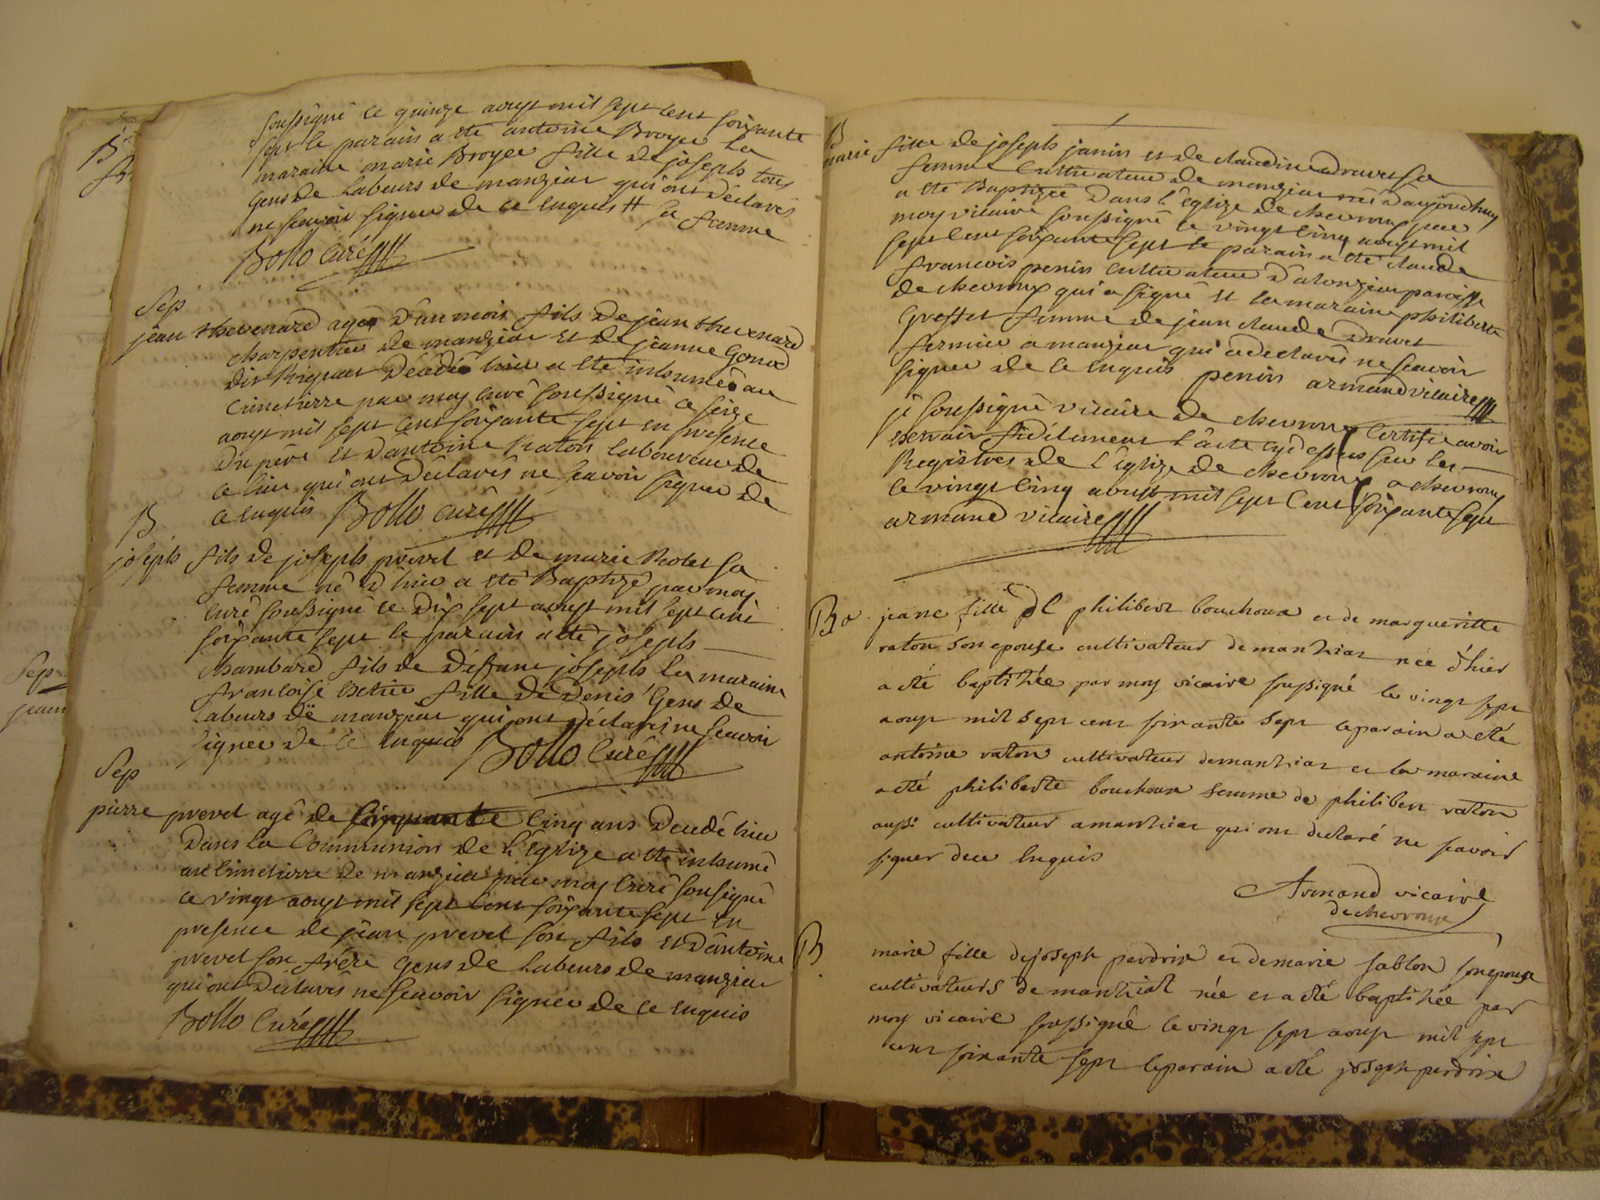 soussigné ce quinze aoust mil sept cent soixante
sept le parain a eté antoine Broyer la
maraine marie Broyer fille de joseph tous
gens de labeurs de manziat qui ont déclarés
ne scavoir signer de ce enquis # sa femme
Bollo curé
Sep
jean thevenard agé d'un mois fils de jean thevenard
charpentier de manziat et de jeanne Gonod
dit décédé hier a eté inhumé au
cimetierre par moy curé soussigné ce seize
aoust mil sept cent soixante sept en presence
du pere et d'antoine Raton laboureur de
ce lieu qui ont déclarés ne scavoir signer de
ce enquis Bollo curé
B
joseph fils de joseph prevel et de marie Rolet sa
femme né d'hier a eté Baptizé par moy
curé soussigné ce dix sept aoust mil sept cent
soixante sept le parain a eté joseph
chambard fils de deffunt joseph la maraine
francoise fille de Denis Gens de
Labeurs de manziat qui ont déclaré ne scavoir
signer de ce enquis Bollo curé
Sep
pierre prevel agé de cinquante cinq ans décédé hier
dans la Communion de l'Eglize a eté inhumé
au Cimetierre de manziat par moy Curé soussigné
ce vingt aoust mil sept cent soixante sept en
presence de jean prevel son fils et d'antoine
prevel son frere Gens de Labeurs de manziat
qui ont déclarés ne scavoir signer de ce enquis
Bollo Curé
Sep
jean
B
marie fille de joseph janin et de claudine dravet sa
femme cultivateur de manziat née d'aujourdhuy
a eté Baptizée dans l'églize de chevroux par
moy vicaire soussigné le vingt cinq aoust mil
sept cent soixante sept le parain a eté claude
francois penin cultivateur d'alonziat paroisse
de chevroux qui a signé et la maraine philiberte
Greffet femme de jean claude Dravet
fermier a manziat qui a declarés ne scavoir
signer de ce enquis penin armand vicaire
je soussigné vicaire de chevroux Certifie avoir
fidélement l'acte cy dessus sur les
Registres de l'églize de chevroux a chevroux
le vingt cinq aoust mil sept Cent soixante sept
armand vicaire
B jeane fille de philibert bouchoux et de margueritte
raton son epouse cultivateur de manthiat née d'hier
a eté baptisée par moy vicaire soussigné le vingt sept
aoust mil sept cent soixante sept le parain a eté
antoine raton cultivateur de manthiat et la maraine
a eté philiberte bouchoux femme de philibert raton
aussi cultivateur a manthiat qui ont declaré ne scavoir
signer de ce enquis
Armand vicaire
de chevroux
B marie fille de joseph perdrix et de marie sablon son epouse
cultivateurs de manthiat née et a eté baptisée par
moy vicaire soussigné le vingt sept aoust mil sept
cent soixante sept le parain a eté joseph perdrix